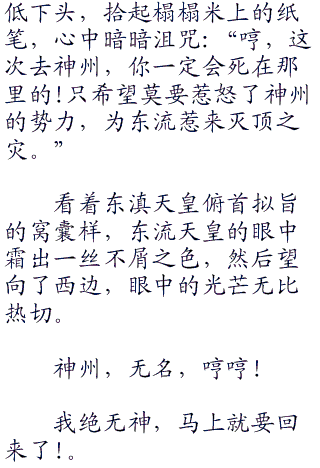 低下头，拾起榻榻米上的纸
笔，心中暗暗诅咒：“哼，这
次去神州，你一定会死在那
里的!只希望莫要惹怒了神州
的势力，为东流惹来灭顶之
灾。”
看着东滇天皇俯首拟旨
的窝囊样，东流天皇的眼中
霜出一丝不屑之色，然后望
向了西边，眼中的光芒无比
热切。
神州，无名，哼哼！
我绝无神，马上就要回
来了!。